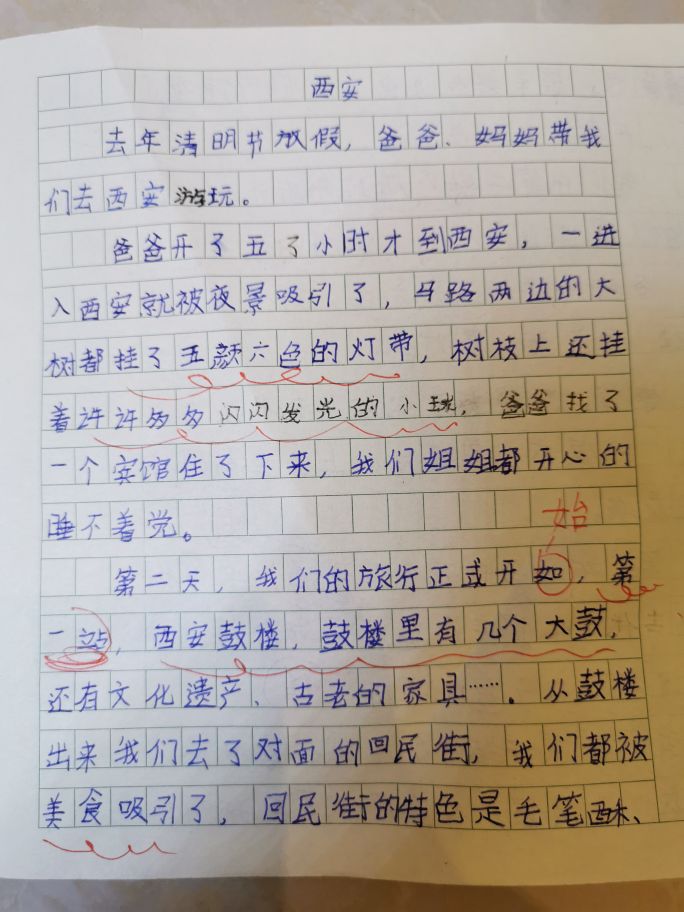 西安
去年清明节放假，爸爸、妈妈带我
们去西安游玩。
爸爸开了五了小时才到西安，一进
入西安就被夜景吸引了，马路两边的大
树都挂了五颜六色的灯带，树枝上还挂
着许许多多闪闪发光的小球，爸爸找了
一个宾馆住了下来，我们姐姐都开心的
睡不着觉。
始
第二天，我们的旅行正式开如，第
一站，西安鼓楼，鼓楼里有几个大鼓，
还有文化遗产、古老的家具……。从鼓楼
出来我们去了对面的回民街，我们都被
美食吸引了，回民街的特色是毛笔酥、